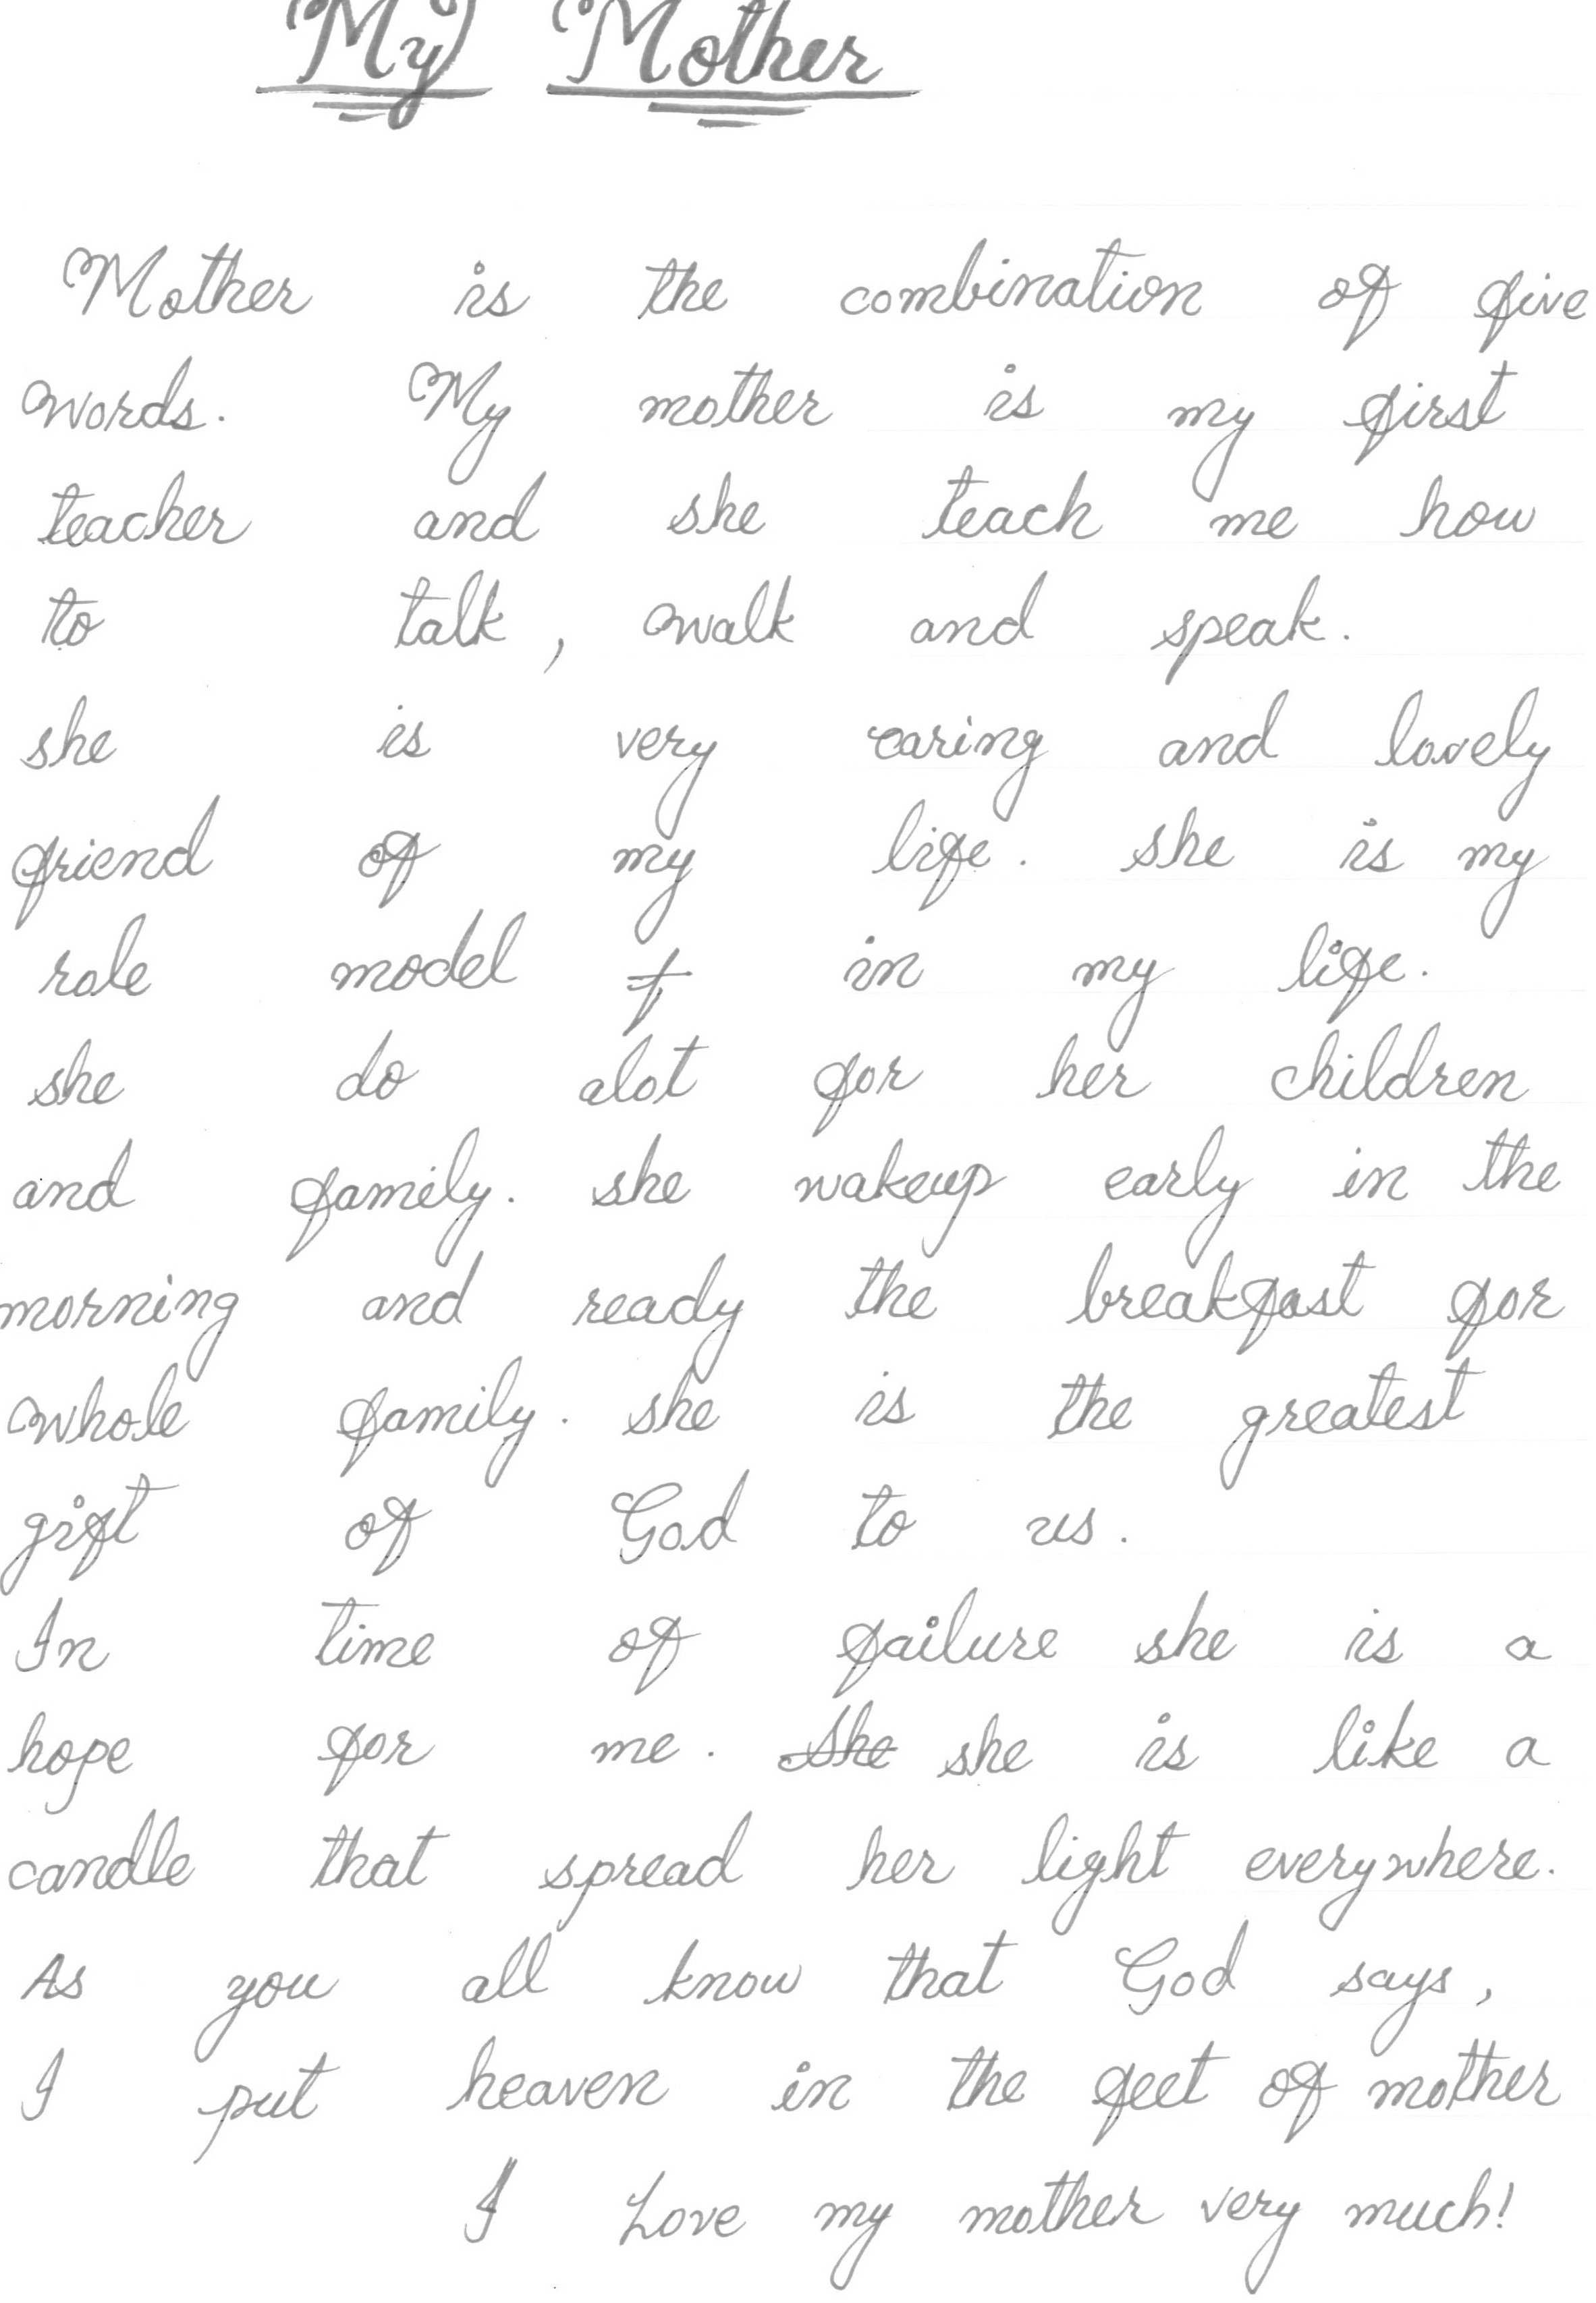 My Mother
Mother is the combination of five
words. My mother is my first
teacher and she teach me how
to talk, walk and speak.
she is very caring and lovely
friend of my life. she is my
role model in my life.
she do alot for her children
and family. she wakeup early in the
morning and ready the breakfast for
whole family. she is the greatest
gift of God to us.
In time of failure she is a
hope for me. She she is like a
candle that spread her light everywhere.
As you all know that God says,
I put heaven in the feet of mother
I Love my mother very much!